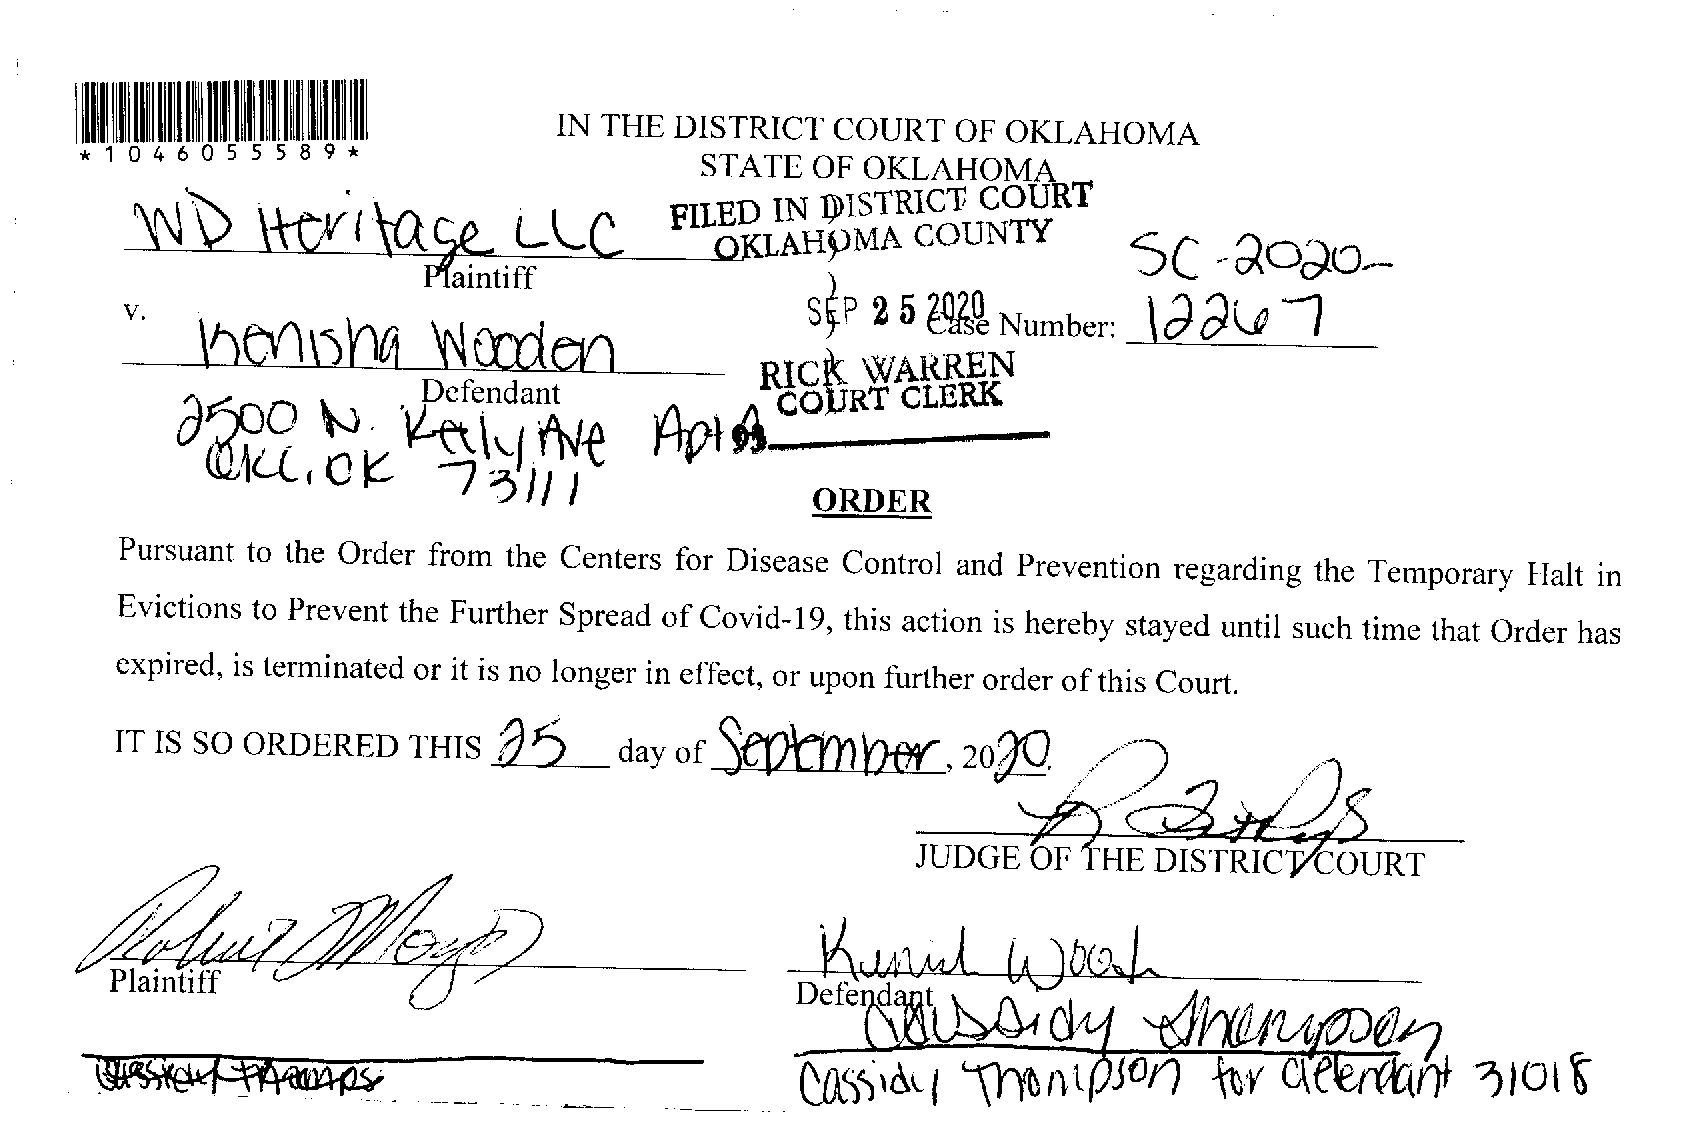 *1046055589*
IN THE DISTRICT COURT OF OKLAHOMA
STATE OF OKLAHOMA
WD Heritage LLC
Plaintiff
FILED IN DISTRICT COURT
OKLAHOMA COUNTY
SEP 25 2020
RICK WARREN
COURT CLERK
SC-2020-
Case Number: 12267
v.
Kenisha Wooden
Defendant
2500 N. Kelly Ave Apt
OKC, OK 73111
ORDER
Pursuant to the Order from the Centers for Disease Control and Prevention regarding the Temporary Halt in
Evictions to Prevent the Further Spread of Covid-19, this action is hereby stayed until such time that Order has
expired, is terminated or it is no longer in effect, or upon further order of this Court.
IT IS SO ORDERED THIS 25 day of September, 2020.
JUDGE OF THE DISTRICT COURT
Plaintiff
Defendant
Cassidy Thompson
Cassidy Thompson for defendant 31018